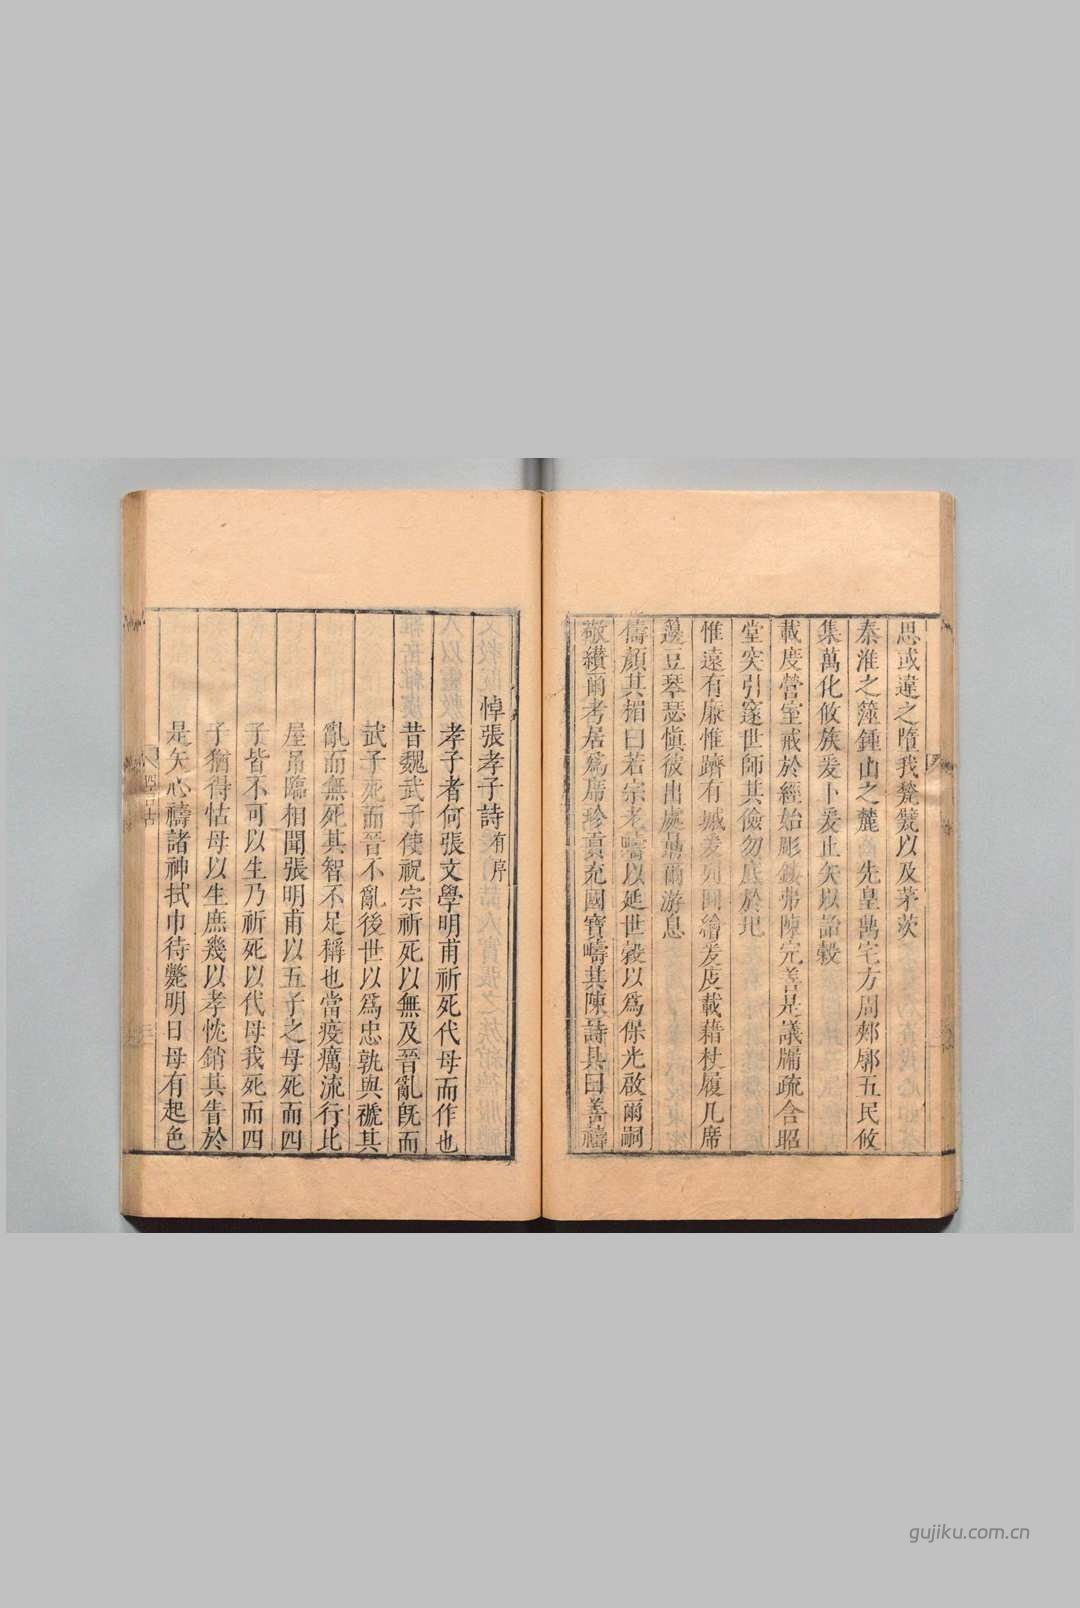 思或違之隋我㷀㷀以及茅茨
秦淮之滋鍾山之麓先皇萬宅方周郊郭五民攸
集萬化攸族爰卜爰止矢以詒穀
載度營室戒於經始彫鏤弗陳完善是議牖疏含昭
堂突引窔世師其儉勿
惟遠有廉惟躋有城爰列圖繪爰度載藉杖履几席
籩豆琴瑟愼彼出處爾游息
儔顏其楣曰若宗老疇以延世穀以爲保光啟爾嗣
敬纘爾考居爲席珍貢充國寶疇其陳詩具曰善禱
悼張孝子詩有序
孝子者何張文學明甫祈死代母而作也
昔魏武子使祝宗祈死以無及晉亂旣而
武子死而晉不亂後世以爲忠孰與虩其
亂而無死其智不足稱也當疫癘流行比
屋弔臨相聞張明甫以五子之母死而四
子皆不可以生乃祈死以代母我死而四
子猶得怙母以生庶幾以孝忱銷其眚於
是矢心禱諸神拭巾待斃明日母有起色
gujiku.com.cn